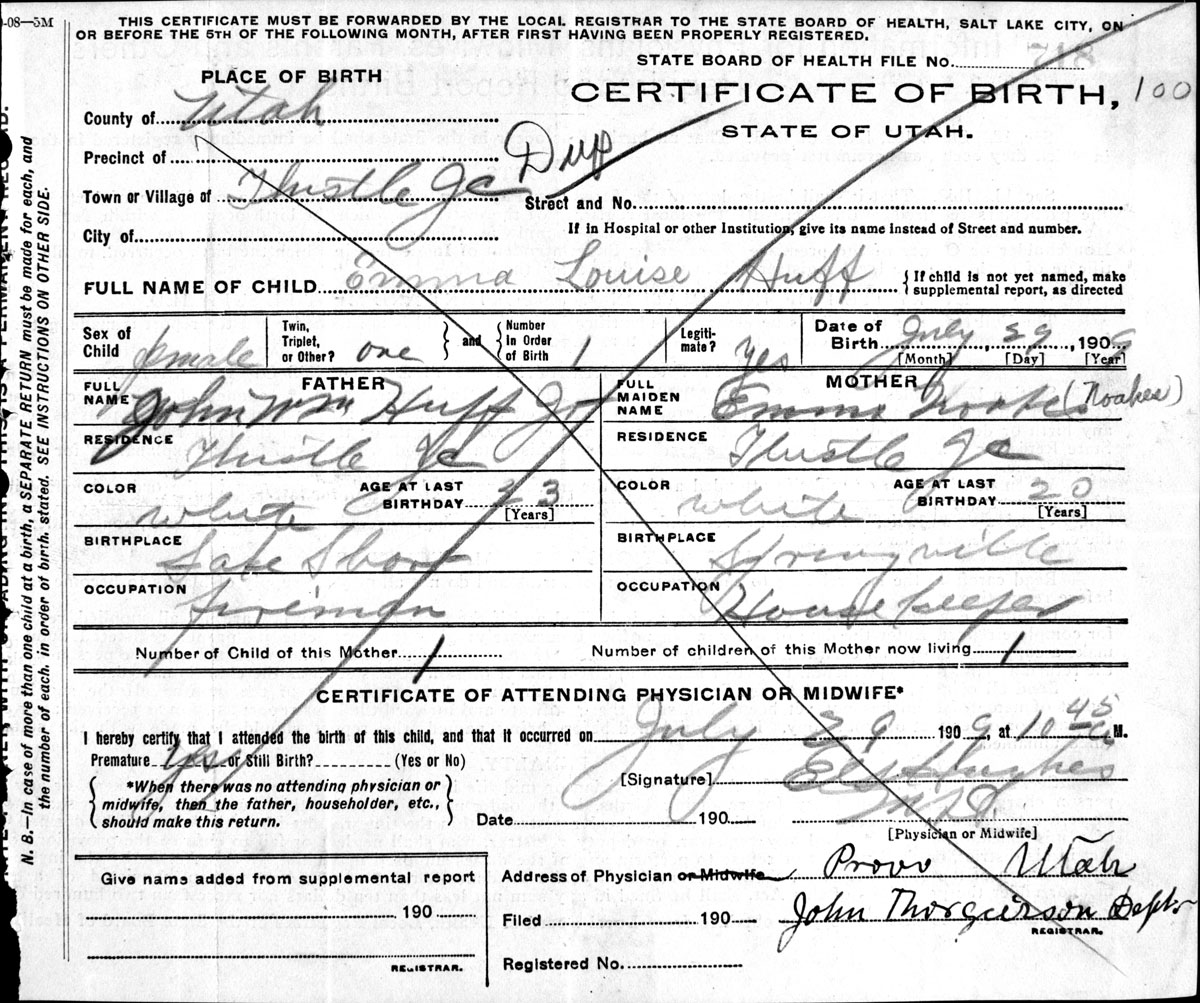 -08-5M
THIS CERTIFICATE MUST BE FORWARDED BY THE LOCAL REGISTRAR TO THE STATE BOARD OF HEALTH, SALT LAKE CITY, ON
OR BEFORE THE 5TH OF THE FOLLOWING MONTH, AFTER FIRST HAVING BEEN PROPERLY REGISTERED.
STATE BOARD OF HEALTH FILE No.
PLACE OF BIRTH
CERTIFICATE OF BIRTH, 100
STATE OF UTAH.
County of Utah
Dup
Precinct of
Town or Village of Thistle Jc
Street and No.
City of
If in Hospital or other Institution, give its name instead of Street and number.
FULL NAME OF CHILD Emma Louise Huff
{ If child is not yet named, make
supplemental report, as directed
Sex of Child female
Twin, Triplet, or Other? one } and { Number In Order of Birth 1
Legiti-mate? yes
Date of Birth July 29, 1909
[Month] [Day] [Year]
FATHER
FULL NAME John Wm Huff Jr
MOTHER
FULL MAIDEN NAME Emma Noakes (Noakes)
RESIDENCE Thistle Jc
RESIDENCE Thistle Jc
COLOR white AGE AT LAST BIRTHDAY 23 [Years]
COLOR white AGE AT LAST BIRTHDAY 20 [Years]
BIRTHPLACE
BIRTHPLACE Springville
OCCUPATION Fireman
OCCUPATION Housekeeper
Number of Child of this Mother 1
Number of children of this Mother now living 1
CERTIFICATE OF ATTENDING PHYSICIAN OR MIDWIFE*
I hereby certify that I attended the birth of this child, and that it occurred on July 29 1909, at 10 45 M.
Premature yes or Still Birth? (Yes or No)
{ *When there was no attending physician or
midwife, then the father, householder, etc.,
should make this return. }
[Signature] Hughes
M.D.
Date 190
[Physician or Midwife]
Give name added from supplemental report
190
REGISTRAR.
Address of Physician or Midwife Provo Utah
Filed 190 John Thorgeirson Dept.
REGISTRAR.
Registered No.
N. B.—In case of more than one child at a birth, a SEPARATE RETURN must be made for each, and
the number of each, in order of birth, stated. SEE INSTRUCTIONS ON OTHER SIDE.